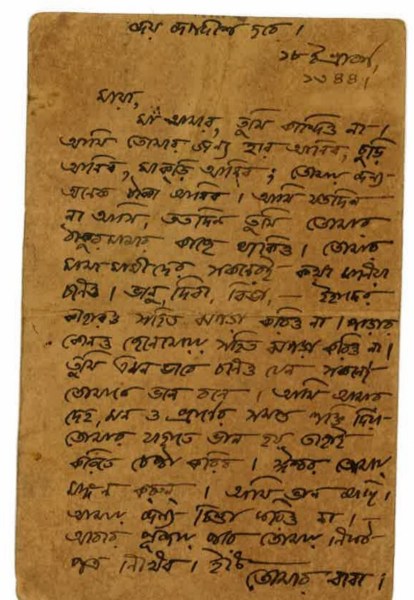 জয় জগদীশ হরে।
১৮ই শ্রাবণ,
১৩৪৪।
মায়া,
মা আমার, তুমি কাঁদিও না।
আমি তোমার জন্য হার আনিব, চুড়ি
আনিব, মাকড়ি আনিব; তোমার জন্য
অনেক টাকা আনিব। আমি যতদিন
না আসি, ততদিন তুমি তোমার
ঠাকুরমায়ের কাছে থাকিও। তোমার
মামা মামীদের সকলেরই কথা মানিয়া
চলিও। ভানু, দিবা, বিভা, — ইহাদের
কাহারও সহিত ঝগড়া করিও না। পাড়ার
কোনও ছেলেমেয়ের সহিত ঝগড়া করিও না।
তুমি এমন ভাবে চলিও যেন সকলেই
তোমাকে ভাল বলে। আমি আমার
দেহ, মন ও প্রাণের সমস্ত শক্তি দিয়া
তোমার যাহাতে ভাল হয় তাহাই
করিতে চেষ্টা করিব। ঈশ্বর তোমার
মঙ্গল করুন। আমি ভাল আছি।
আমার জন্য চিন্তা করিও না।
আবার পূজার পরে তোমায়
পত্র লিখিব। ইতি
তোমার বাবা।